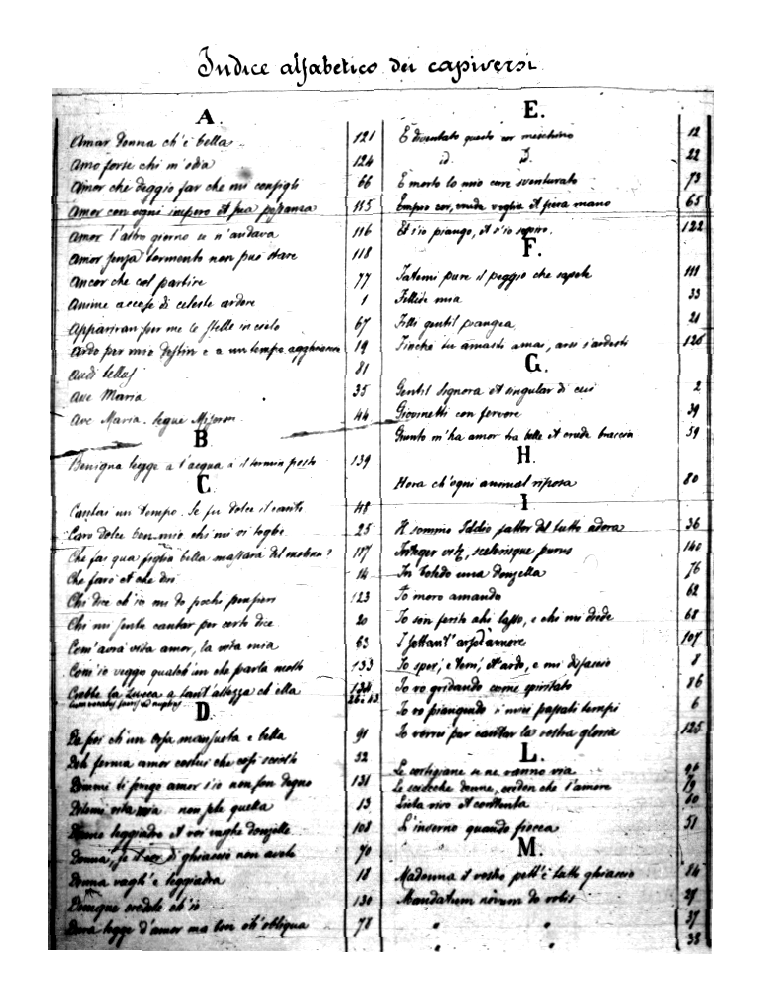 Indice alfabetico dei capiversi
A.
Amar donna ch'è bella 121
Amo forse chi m'odia 124
Amor che deggio far che mi consigli 66
Amor con ogni impero et sua possanza 115
Amor l'altro giorno se n'andava 116
Amor senza tormento non può stare 118
Ancor che col partire 77
Anime accese di celeste ardore 1
Appariran per me le stelle in cielo 67
Ardo per mio destin e a un tempo agghiaccio 19
Audi tellus 81
Ave Maria 35
Ave Maria. segue 44
B
Benigna legge a l'acqua à il termin posto 139
C
Cantai un tempo. Se fu dolce il canto 48
Caro dolce ben mio chi mi vi toglie 25
Che fai qua figlia bella massara del 117
Che farò et che dirò 14
Chi dice ch'io mi do pochi pensieri 123
Chi mi sente cantar per certo dice 20
Com'avrà vita amor, la vita mia 63
Com'io veggo qualch'un che parla molto 133
Crebbe la Lucca a tant'altezza ch'ella 134
26 e 43
D.
Da poi ch'un orsa mansueta e bella 91
Deh ferma amor costui che così sciolto 52
Dimmi ti prego amor s'io non son degno 131
Ditemi vita mia non più quella 13
Donne leggiadre et voi vaghe donzelle 108
Donna, se di ghiaccio non avete 70
Donna vagh'e leggiadra 18
Dunque credete ch'io 130
Dura legge d'amor ma ben ch'obliqua 78
E.
È diventato questo cor meschino 12
id. id. 22
È morto lo mio core sventurato 73
Empio cor, cruda voglia et fiera mano 65
Et s'io piango, et s'io sospiro. 122
F.
Fatemi pure il peggio che sapete 111
Fillide mia 33
Filli gentil piangea 21
Finchè tu amasti amai, arsi s'ardesti 126
G.
Gentil signora et singular di cui 2
Giovinetti con fervore 39
Giunto m'ha amor tra belle et crude braccia 59
H.
Hora ch'ogni animal riposa 80
I
Il sommo Iddio fattor del tutto adora 36
Integer vitæ, scelerisque purus 140
In Toledo una donzella 76
Io moro amando 62
Io son ferito ahi lasso, e chi mi diede 68
I sottant'arsd amore 107
Io sper', e tem', et ardo, e mi disfaccio 8
Io vo gridando come spiritato 86
Io vo piangendo i miei passati tempi 6
Io vorrei pur cantar la vostra gloria 125
L.
Le cortigiane se ne vanno via 96
Le sciocche donne, veden che l'amore 79
Lieta vivo et contenta 60
L'inverno quando fiocca 51
M.
Madonna il vostro pett'è tutto ghiaccio 84
Mandatum novum do vobis 27
" " 37
" " 38